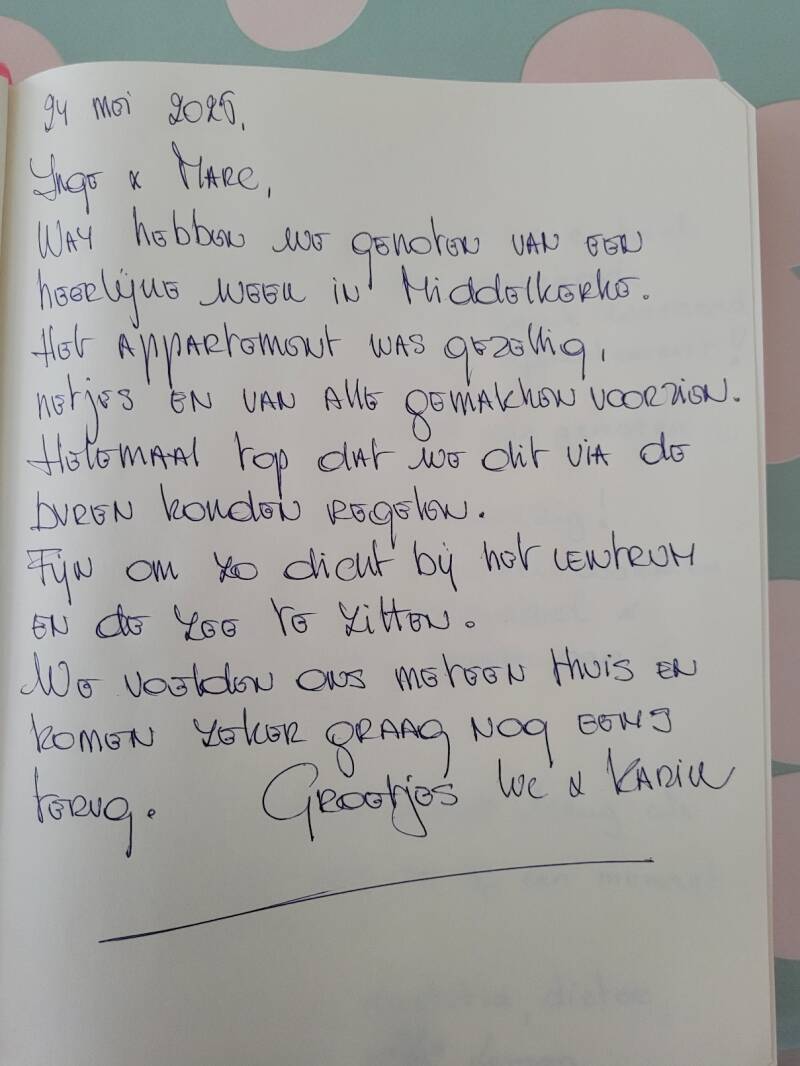 24 mei 2025,
Inge & Marc,
Way hebben we genoten van een
heerlijke week in Middelkerke.
Het appartement was gezellig,
netjes en van alle gemakken voorzien.
Helemaal top dat we dit via de
buren konden regelen.
Fijn om zo dicht bij het centrum
en de zee te zitten.
We voelden ons meteen thuis en
komen zeker graag nog eens
terug. Groetjes Luc & Karin